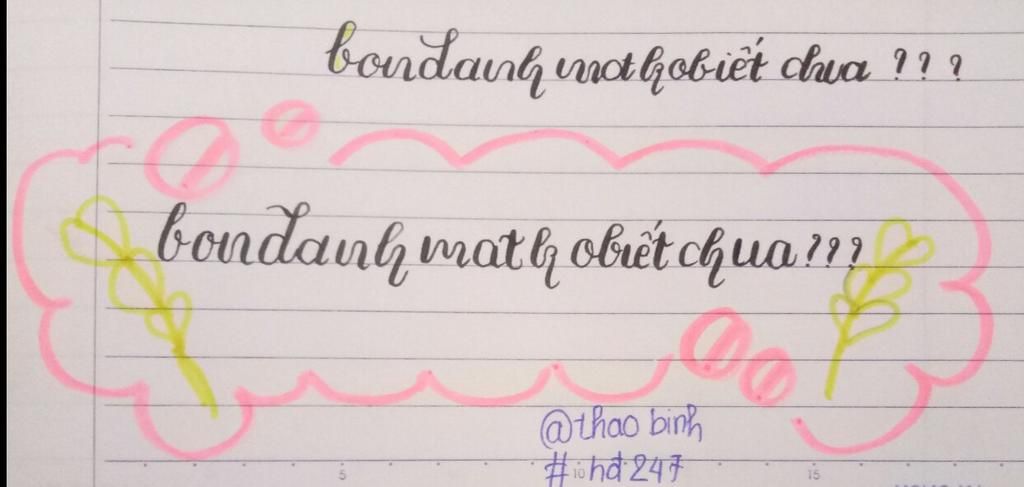 bondanh mat kobiết chua ???
bondanh mat kobiết chua???
@thao binh
# hđ 247
5 10 15